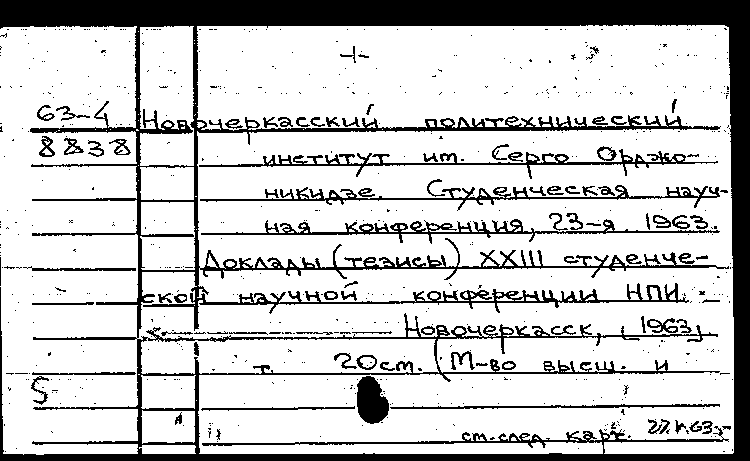 -1-
63-4 Новочеркасский политехнический
8838 институт им. Серго Орджо-
никидзе. Студенческая науч-
ная конференция, 23-я. 1963.
Доклады (тезисы) XXIII студенче-
ской научной конференции НПИ. -
Новочеркасск, [1963]
т. 20см. (М-во высш. и
S
см. след. карт.